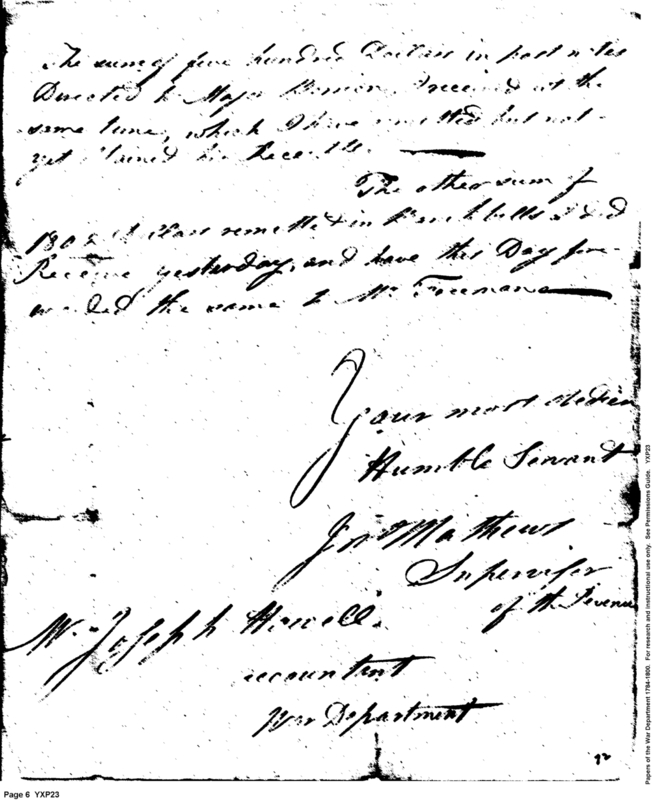 The sum of five hundred Dollars in post notes
Directed to Major I received at the
same time, which I have but not
yet his
The other sum of
remitted in bills I did
Receive yesterday, and have this Day for-
the same to Mr. Freeman
Your most obedien
Humble Servant
Jno Mathews
Supervisor
of th Revenue
Mr. Joseph Howell.
ccountent
War Department
92
Page 6 YXP23
Papers of the War Department 1784-1800. For research and instructional use only. See Permissions Guide. YXP23